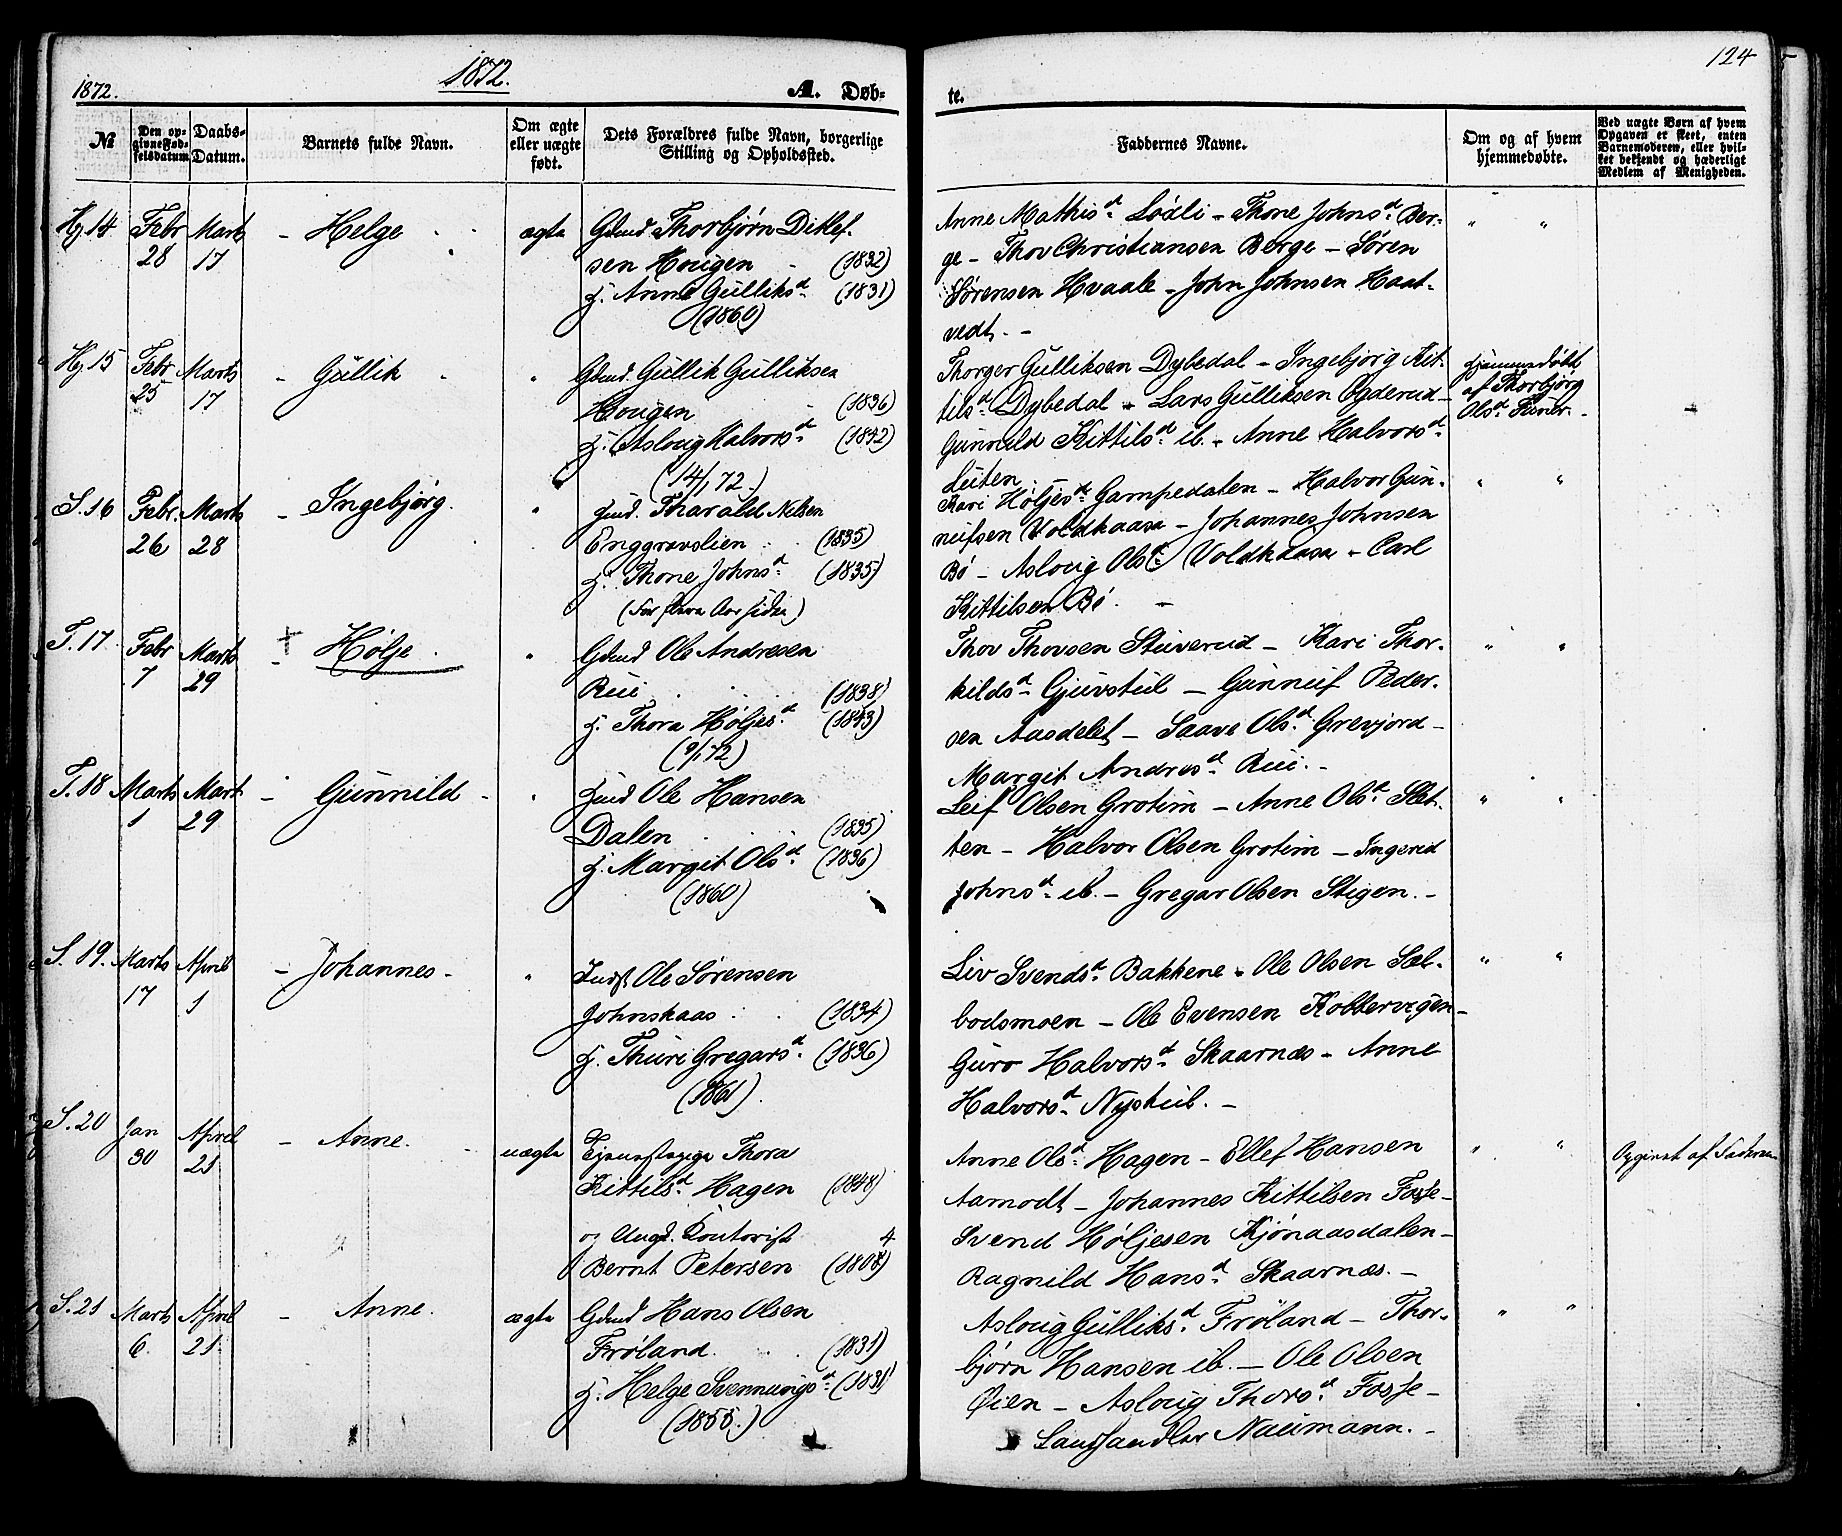 124
1872.
1872.
A. Døb-
te.
№
Den op-
givne Fød-
selsdatum.
Daabs-
Datum.
Barnets fulde Navn.
Om ægte
eller uægte
født.
Dets Forældres fulde Navn, borgerlige
Stilling og Opholdssted.
Faddernes Navne.
Om og af hvem
hjemmedøbte.
Ved uægte Børn af hvem
Opgaven er skeet, enten
Barnemoderen, eller hvil-
ket bekjendt og hæderligt
Medlem af Menigheden.
Hj 14 Febr 28 Marts 17 - Helge ægte
Gbmd Thorbjørn Ditlef-
sen Hougen (1832)
H. Anne Gulliksd. (1831)
(1860)
Anne Mathisd. Loxli - Thone Johnsd. Ber-
ge - Thov Christiansen Berge - Søren
Sørensen Hvaale - John Johnsen Haat-
vedt. - " "
Hj 15 Febr 25 Marts 17 - Gullik "
Gbmd. Gullik Gulliksen
Hougen (1836)
H. Asloug Halvorsd. (1842)
(14/1 72.)
Thorger Gulliksen Dybedal - Ingebjørg Kit-
tilsd. Dybedal - Lars Gulliksen Ogderud -
Gunnild Kittilsd. ib. - Anne Halvorsd.
Leiten.
Hjemmedøbt
af Thorbjørg
Olsd.
S. 16 Febr. 26 Marts 28 - Ingebjørg. "
Hmd. Tharald Nilsen
Enggravslien (1835)
H. Thone Johnsd. (1835)
Kari Høljesd. Gampedalen - Halvor Gun-
nufsen Voldkaasa - Johannes Johnsen
Bø - Asloug Olsd. Voldkaasa - Carl
Kittilsen Bø. - " "
T. 17 Febr 7 Marts 29 + - Hølje. "
Gbmd Ole Andresen
Rui (1838)
H. Thora Høljesd. (1843)
(9/1 72)
Thov Thovsen Stuverud - Kari Thor-
kildsd. Gjuvstul - Gunnuf Peder-
sen Aasdelet - Saave Olsd. Grevjord -
Margit Andresd. Rui. - " "
T. 18 Marts 1 Mart 29 - Gunnild - "
Hmd Ole Hansen
Dalen (1835)
H. Margit Olsd. (1836)
(1860)
Leif Olsen Grotim - Anne Olsd. Slet-
ten - Halvor Olsen Grotim - Ingerid
Johnsd. ib. - Gregar Olsen Stigen. - " "
S. 19. Marts 17 April 1 - Johannes - "
Indst Ole Sørensen
Johnskaas (1834)
H. Thuri Gregarsd. (1836)
(1861).
Liv Svendsd. Bakkene - Ole Olsen Sæl-
bodsmoen - Ole Evensen Kobbervigen -
Guro Halvorsd. Skaarnæs - Anne
Halvorsd. Nystul. - " "
S. 20 Jan 30 April 21 - Anne. - uægte
Tjenestepige Thora
Kittilsd. Hagen (1848)
og Ungk. Kontorist 4
Bernt Petersen
Anne Olsd. Hagen - Ellef Hansen
Aamodt - Johannes Kittilsen Fosse -
Svend Høljesen Kjønaasdalen -
Ragnild Hansd. Skaarnæs. - " "
Opgivet af Faderen
S. 21 Marts 6. April 21. - Anne. ægte
Gbmd Hans Olsen
Frøland. (1831)
H. Helge Svennungsd. (1831)
(1855.)
Asloug Gulliksd. Frøland - Thor-
bjørn Hansen ib. - Ole Olsen
Øien - Asloug Thorsd. Fosse -
Landhandler Naumann. - " "